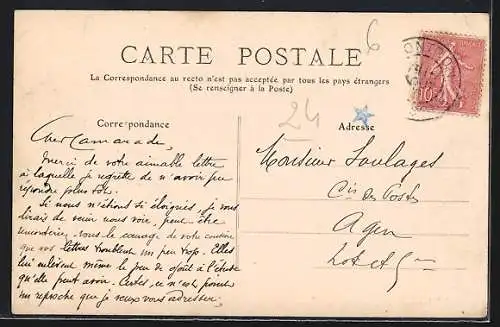 6
CARTE POSTALE
La Correspondance au recto n'est pas acceptée par tous les pays étrangers
(Se renseigner à la Poste)
24
Correspondance
Adresse
Cher Camarade,
Merci de votre aimable lettre
à laquelle je regrette de n'avoir pu
répondre plus tôt.
Si nous n'étions si éloignés, je vous
dirais de venir nous voir, peut être
le courage de votre
que vos lettres troublent un peu trop. Elles
lui enlèvent même le peu de goût à l'étude
qu'elle peut avoir. Certes, ce n'est point
un reproche que je veux vous adresser.
Monsieur Soulages
Cis des Postes
Agen
Lot et Gne
10